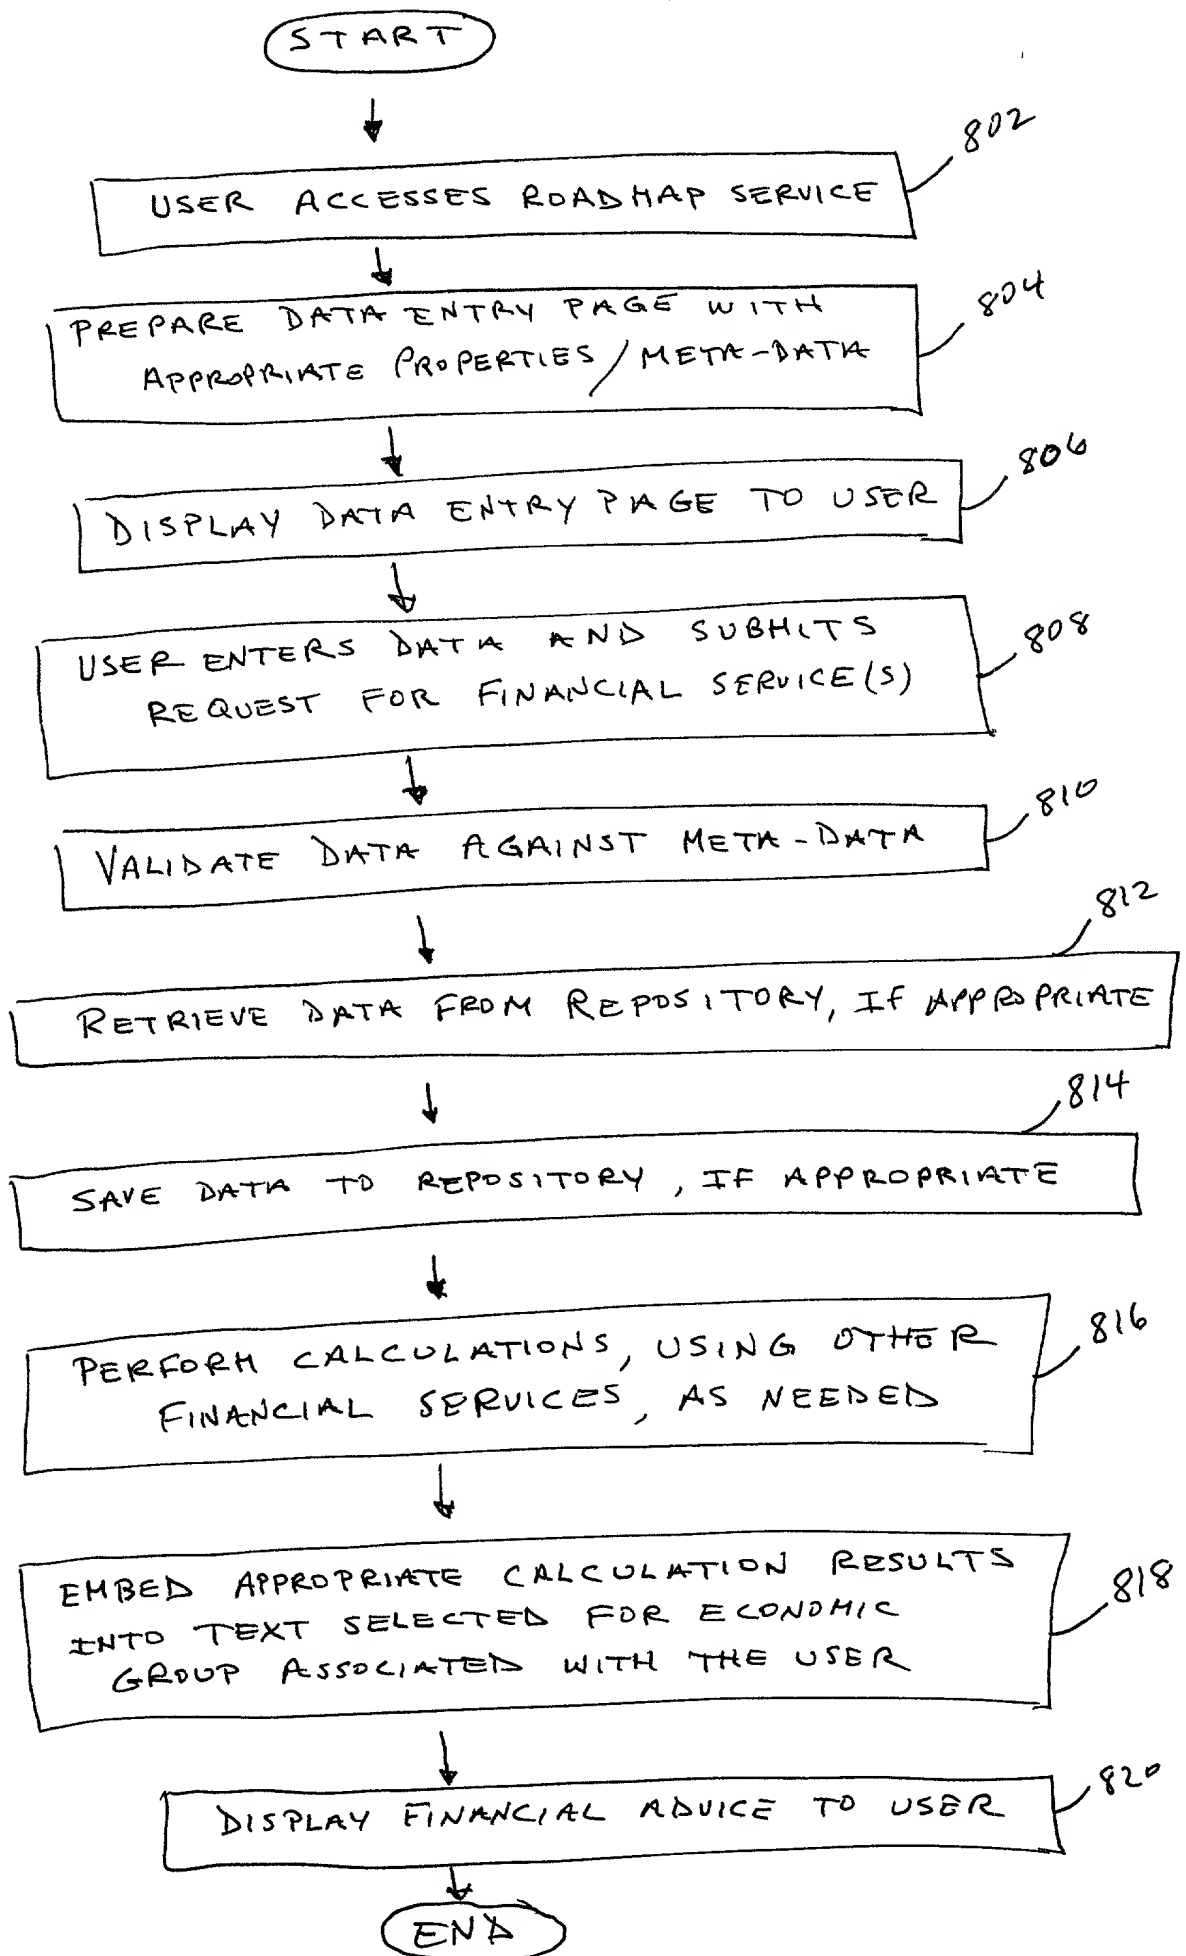 START
802
USER ACCESSES ROADMAP SERVICE
804
PREPARE DATA ENTRY PAGE WITH
APPROPRIATE PROPERTIES / META-DATA
806
DISPLAY DATA ENTRY PAGE TO USER
808
USER ENTERS DATA AND SUBMITS
REQUEST FOR FINANCIAL SERVICE(S)
810
VALIDATE DATA AGAINST META-DATA
812
RETRIEVE DATA FROM REPOSITORY, IF APPROPRIATE
814
SAVE DATA TO REPOSITORY, IF APPROPRIATE
816
PERFORM CALCULATIONS, USING OTHER
FINANCIAL SERVICES, AS NEEDED
818
EMBED APPROPRIATE CALCULATION RESULTS
INTO TEXT SELECTED FOR ECONOMIC
GROUP ASSOCIATED WITH THE USER
820
DISPLAY FINANCIAL ADVICE TO USER
END